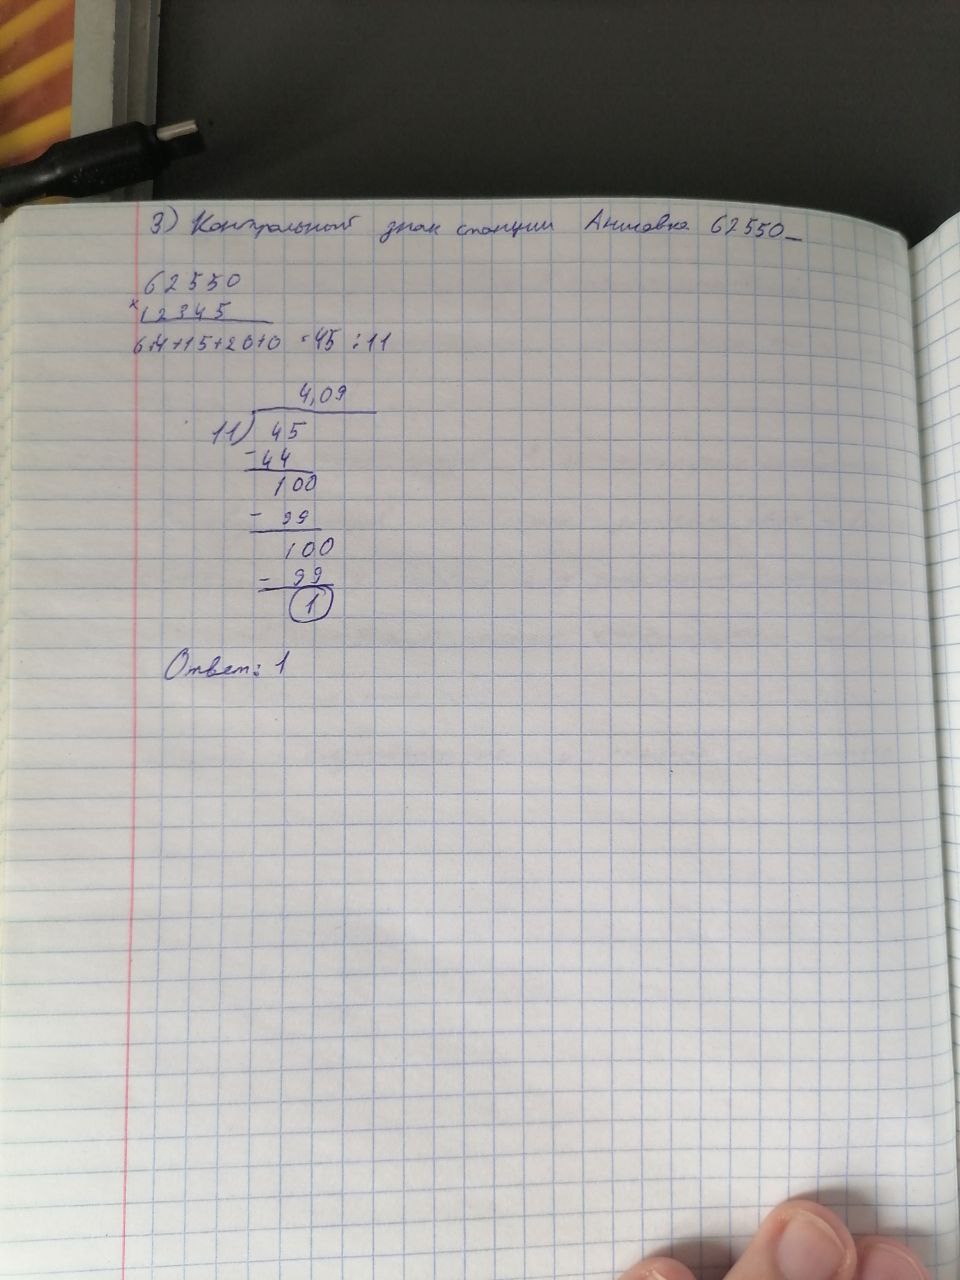 3) Контрольный знак станции Анисовка 62550_
62550
× 12345
6+4+15+20+0 = 45 : 11
4,09
11) 45
- 44
100
- 99
100
- 99
1
Ответ: 1